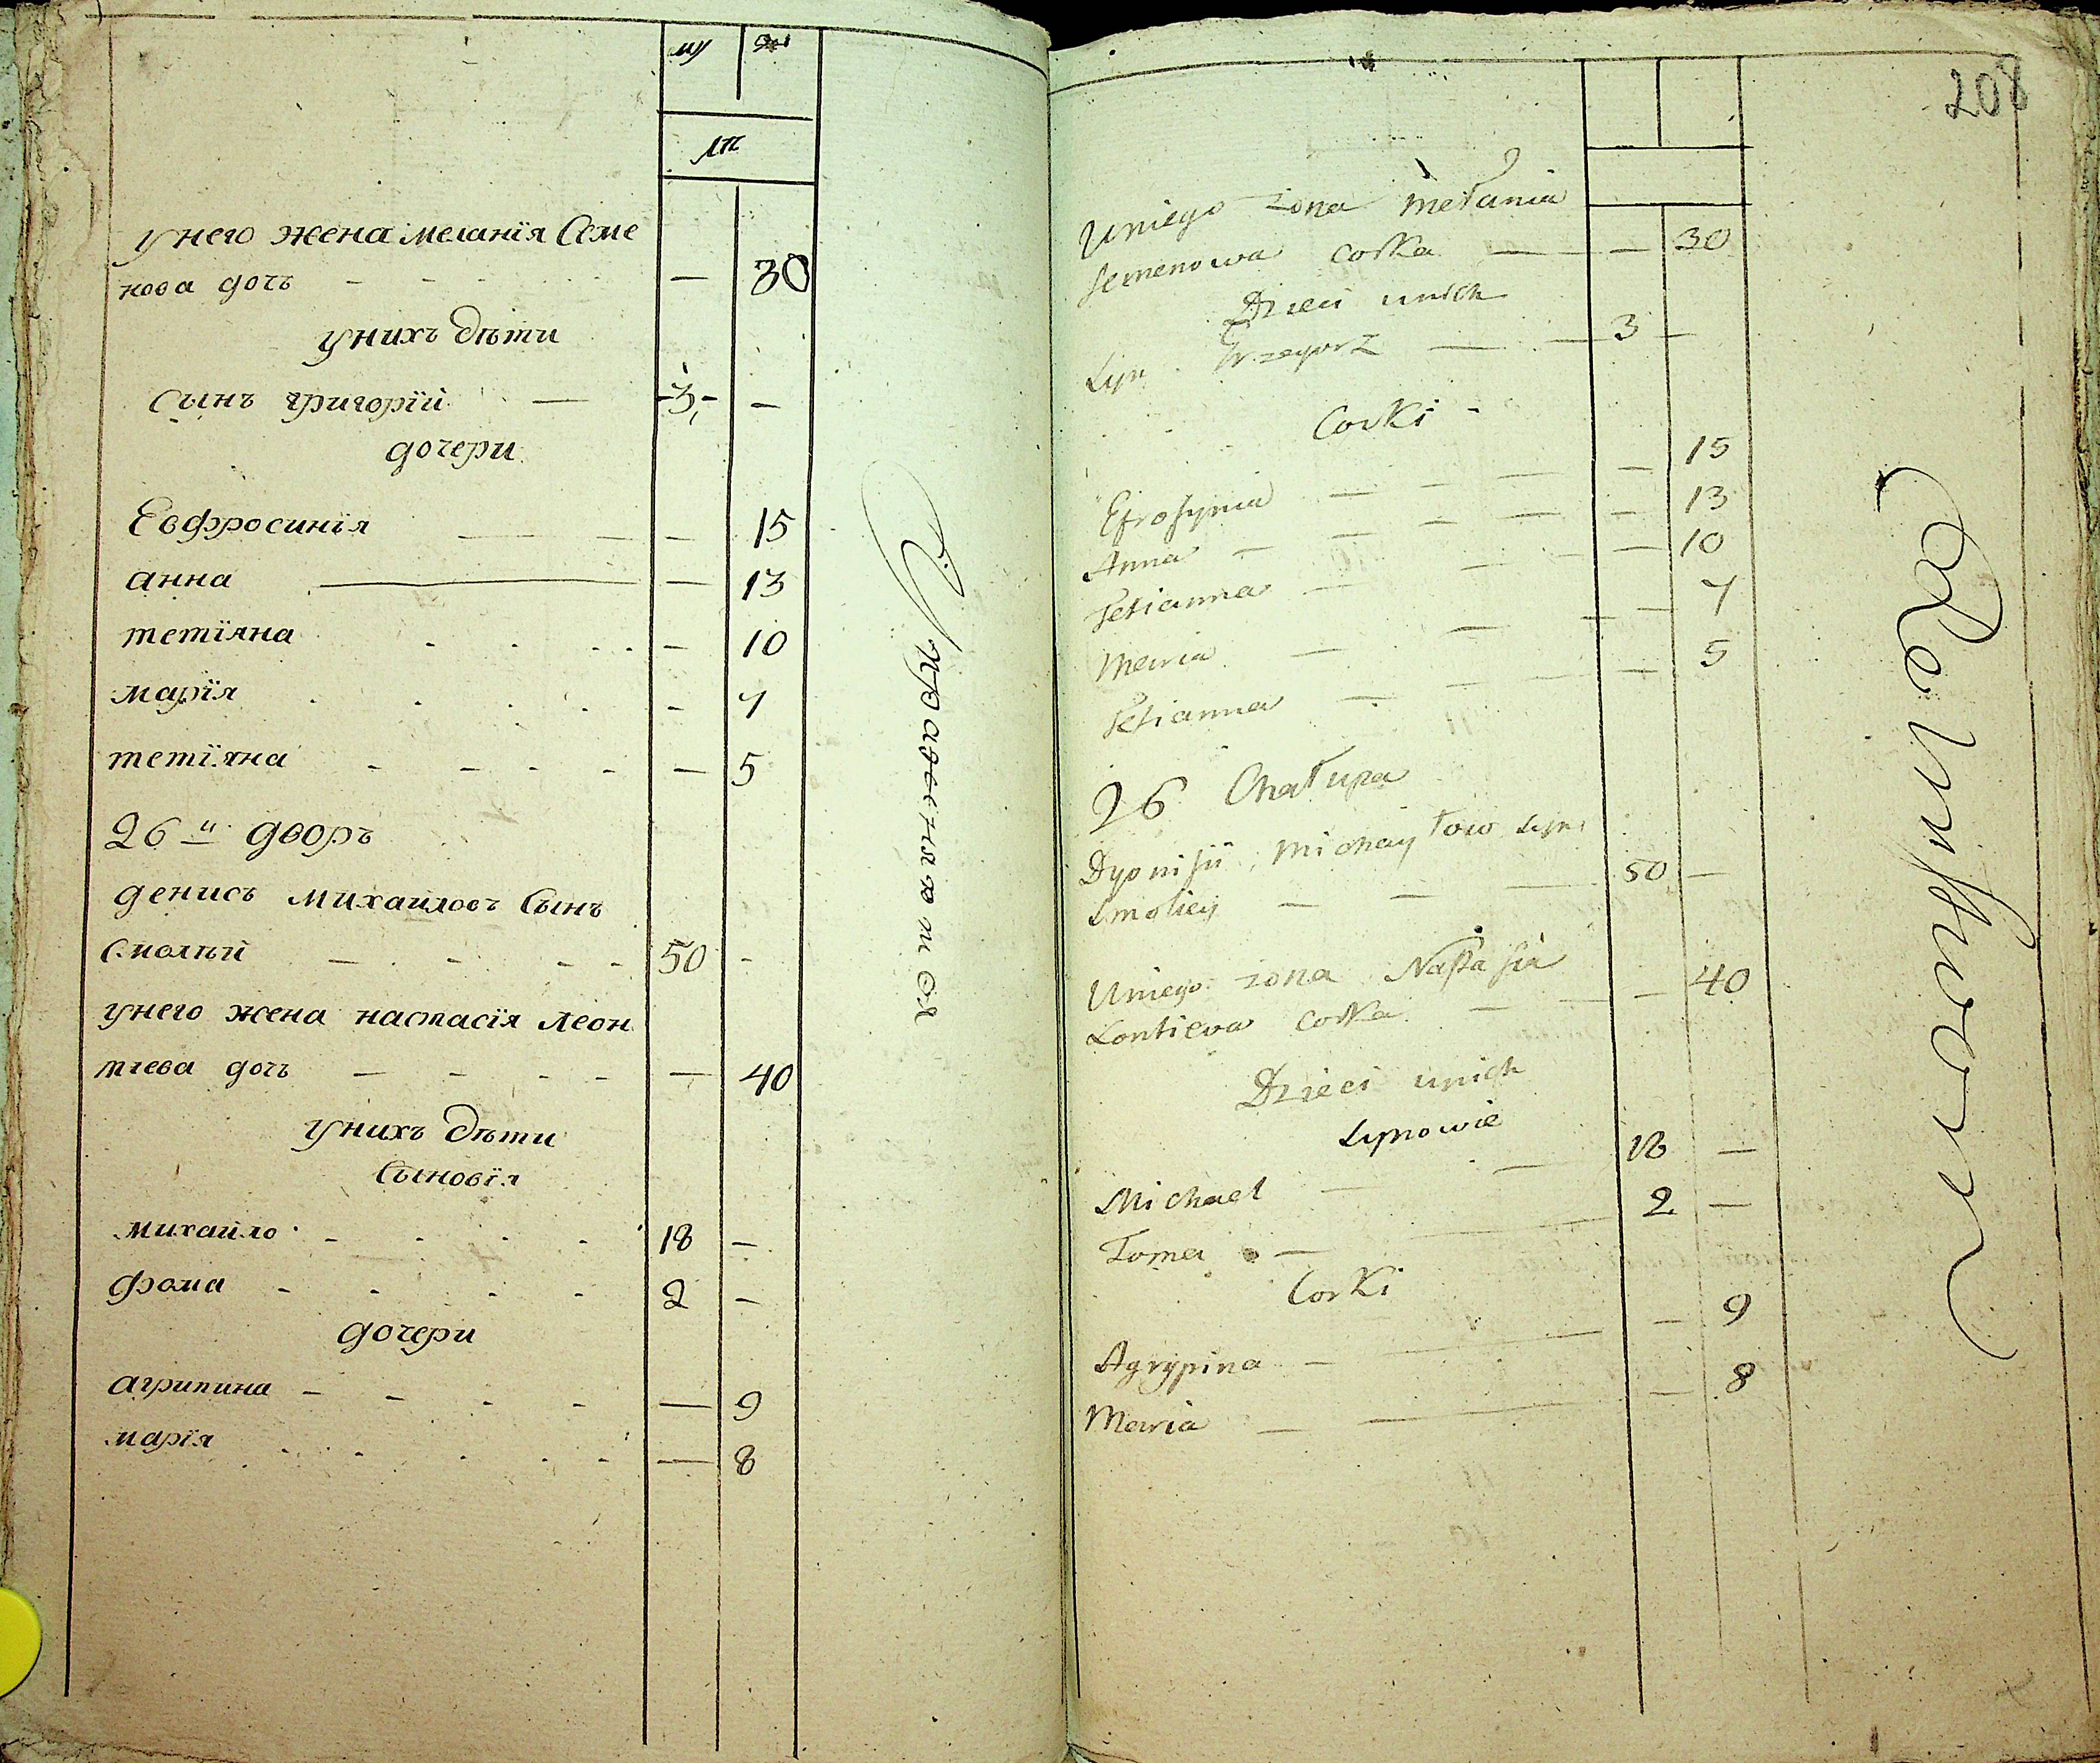 му же
лѣ
унего жена меланїя Семе
нова дочь - - - - 30
унихъ дѣти
Сынъ григорїй — -3,- —
дочери
Евфросинїя — — — 15
анна — — 13
тетїяна - - - - - 10
марїя - - - - - 7
тетїяна - - - - — 5
26й дворъ
денисъ михайловъ Сынъ
Смолѣй — - - - - 50 -
унего жена настасїя леон
тїева дочь — - - - — 40
унихъ дѣти
Сыновїя
михайло - - - - 18 —
фома - - - - 2 —
дочери
агрипина - - - - — 9
марїя - - - - — 8
208
Uniego zona Metania
Semenowa corka — — 30
Dzieci unich
Syn Grzegorz — — 3 —
Corki -
Efrosynia — - — — 15
Anna — — - — — 13
Tetianna — — — — 10
Maria — — — — 7
Tetianna — - — — 5
26 Chałupa
Dyonisii Michayłow Syn
Smoliey — — — 50 —
Uniego zona Nastasia
Lontieva corka — — — 40
Dzieci unich
Synowie
Michael — — 18 —
Toma — — 2 —
Corki
Agrypina — — — 9
Maria — — — 8